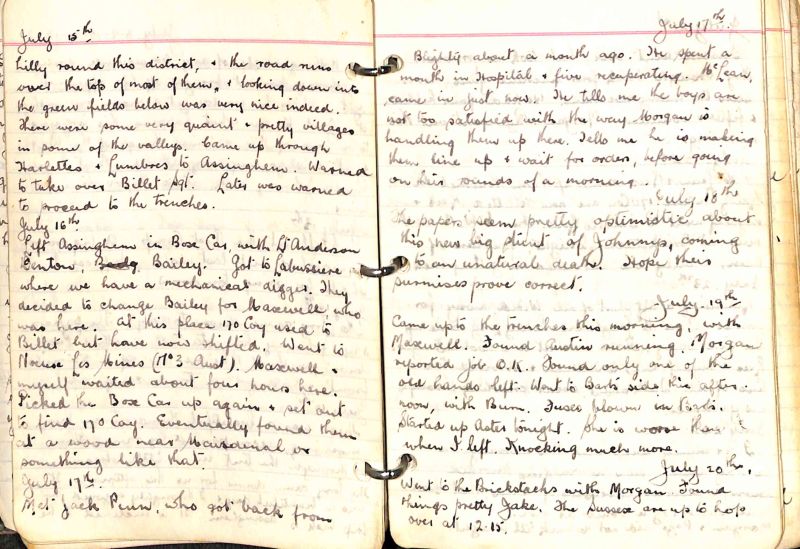 July 15th
hilly round this district, & the road runs
over the top of most of them, & looking down into
the green fields below was very nice indeed.
There were some very quaint & pretty villages
in some of the valleys. Came up through
Harlettes & Lumbres to Assinghem. Warned
to take over Billet Sgt. Later was warned
to proceed to the trenches.
July 16th
Left Assinghem in Box Car, with Lt Anderson
Benton, Bailey. Got to Labussiere
where we have a mechanical digger. They
decided to change Bailey for Maxewell, who
was here. At this place 170 Coy used to
Billet but have now shifted. Went to
Noeuse les Mines (No 3 Aust). Maxewell &
myself waited about four hours here.
Picked the Box Car up again & set out
to find 170 Coy. Eventually found them
at a wood near or
something like that.
July 17th.
Met Jack Penn, who got back from
July 17th
Blighty about a month ago. He spent a
month in Hospital & five recuperating. McLean,
came in just now. He tells me the boys are
not too satisfied with the way Morgan is
handling them up there. Tells me he is making
them line up & wait for orders, before going
on their rounds of a morning.
July 18th
The papers seem pretty optimistic about
this new big of Johnnys, coming
to an unatural death. Hope their
surmises prove correct.
July. 19th
Came up to the trenches this morning, with
Maxewell. Found Austin running. Morgan
reported job O.K. Found only one of the
old hands left. Went to Barts side this after-
noon, with Burn. blown in Barts.
Started up Aster tonight. She is worse than
when I left. Knocking much more.
July 20th,
Went to the Brickstacks with Morgan. Found
things pretty Jake. The Sussex are up to hop
over at 12.15.